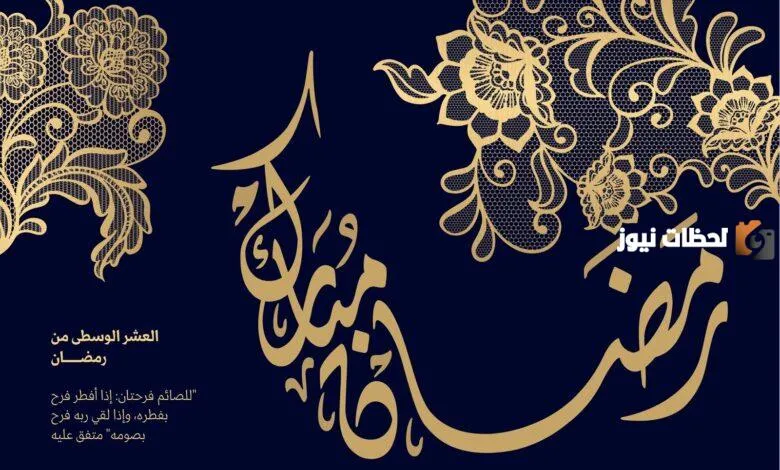 رمضان مبارك
لحظات نيوز
العشر الوسطى من
رمضـــان
"للصائم فرحتان: إذا أفطر فرح
بفطره، وإذا لقي ربه فرح
بصومه" متفق عليه